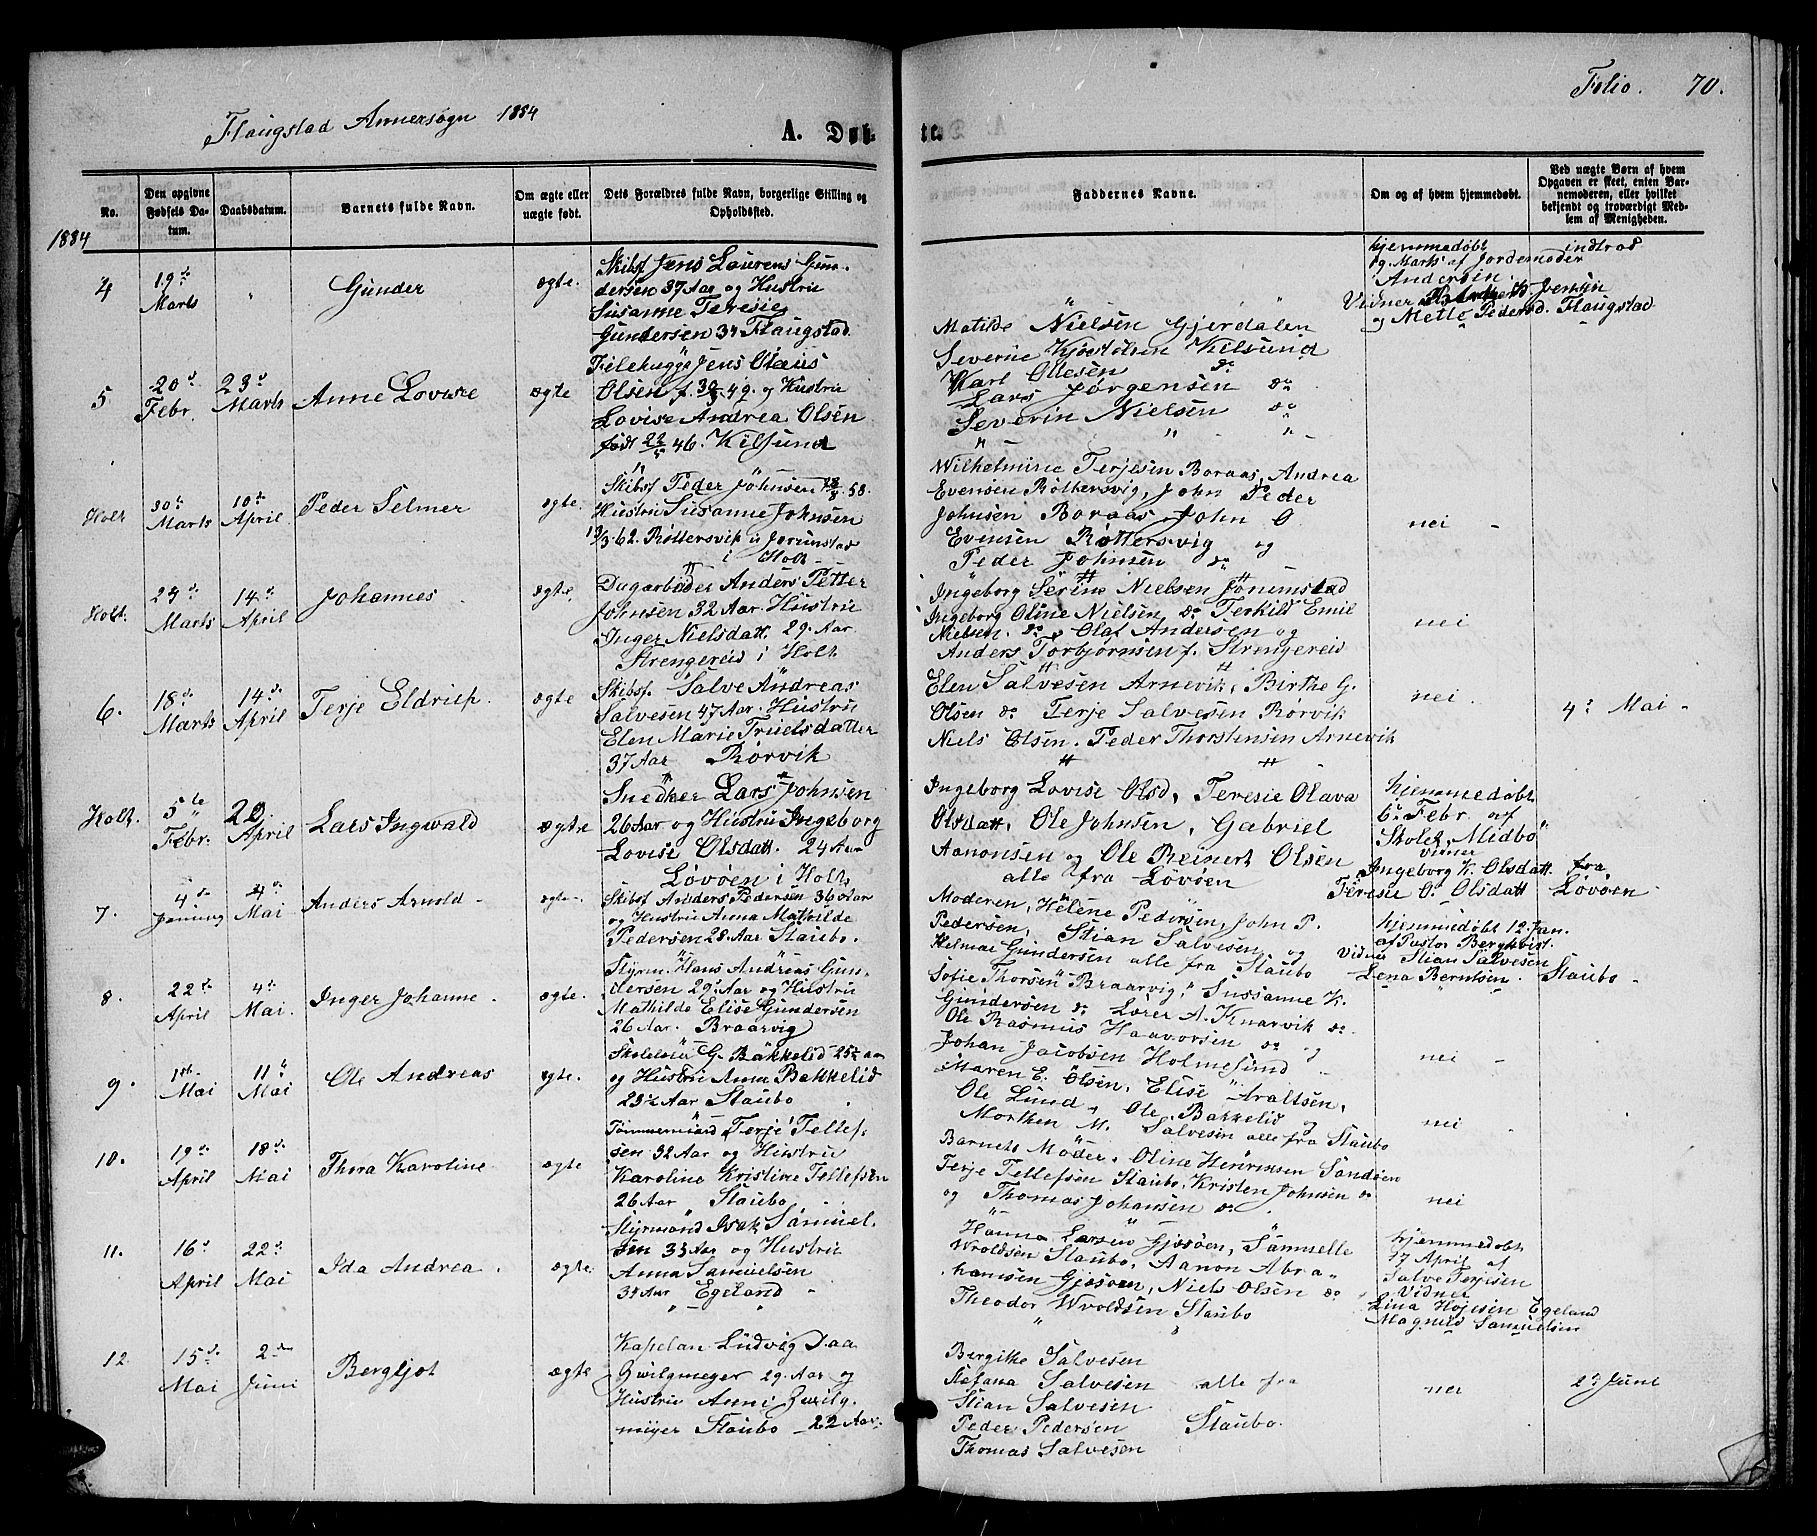 Flaugstad Annexsogn 1884
A. Døb-
te.
Folio. 70.
No.
Den opgivne Fødsels Datum.
Daabsdatum.
Barnets fulde Navn.
Om ægte eller uægte født.
Dets Forældres fulde Navn, borgerlige Stilling og Opholdsted.
Faddernes Navne.
Om og af hvem hjemmedøbt.
Ved uægte Børn af hvem Opgaven er skeet, enten Barnemoderen, eller hvilket bekjendt og troværdigt Medlem af Menigheden.
1884
4
19de Marts
"
Gunder
ægte.
Skibsf Jens Laurens Gun-
dersen 37 Aar og Hustrie
Susanne Teresie
Gundersen 34 Flaugstad.
hjemmedøbt indtrad
Marts af Jordemoder
Andersen.
Vidner Jensen
og Mette Pedersd. Flaugstad
5
20d Febr.
23d Marts
Anne Lovise
ægte
Filehugger Jens Olaus
Olsen f. 49. og Hustrie
Lovise Andrea Olsen
født 46. Kilsund
Matilde Nielsen Gjerdalen
Severine Kjøstolsen Kilsund
Karl Ottesen do
Lars Jørgensen do
Severin Nielsen do
Holt
30te Marts
10de April
Peder Selmer
ægte.
Skibsf Peder Johnsen 58.
Hustrie Susanne Johnsen
13/3.62. Røttersvik Jorunstad
i Holt
Wilhelmine Terjesen Boraas, Andrea
Evensen Røttersvig, John Peder
Johnsen Boraas, John O.
Evensen Røttersvig og
Peder Johnsen do
nei
Holt.
24de Marts
14de April
Johannes
ægte.
Dagarbeider Anders Petter
Johnsen 32 Aar. Hustrie
Inger Nielsdatt. 29. Aar.
Strengereid i Holt
Ingeborg Serine Nielsen Jorunstad
Ingeborg Oline Nielsen do Terkild Emil
Nielsen. do, Olaf Andersen og
Anders Torbjørnsen f. Strengereid
nei
6.
18de Marts
14de April
Terje Eldriep.
ægte
Skibsf. Salve Andreas
Salvesen 47 Aar. Hustrie
Elen Marie Truelsdatter
37 Aar Rørvik
Elen Salvesen Arnevik, Birthe G.
Olsen do Terje Salvesen Rørvik
Niels Olsen. Peder Thorstensen Arnevik
nei
4d Mai
Holt.
5te Febr.
22. April
Lars Ingwald
ægte
Snedker Lars Johnsen
26 Aar og Hustrie Ingeborg
Lovise Olsdatt. 24 Aar
Løvøen i Holt
Ingeborg Lovise Olsd, Teresie Olava
Olsdatt. Ole Johnsen, Gabriel
Aanonsen og Ole Reinert Olsen
alle fra Løvøen
hjemmedøbt
6d Febr af
Skolel. Midbø
Vidner
Ingeborg K. Olsdatt fra
Teresie O. Olsdatt Løvøen
7.
4de Januar
4de Mai
Anders Arnold
ægte
Skibsf Anders Pedersen 36 Aar
og Hustrie Anna Mathilde
Pedersen 28 Aar Staubo.
Moderen, Helene Pedersen, John P.
Pedersen, Stian Salvesen og
Helmar Gundersen alle fra Staubo
hjemmedøbt 12. Jan.
af Pastor Bergkvist.
Vidner Stian Salvesen
Lena Berntsen. Staubo
8.
22de April
4de Mai.
Inger Johanne
ægte.
Styrm. Hans Andreas Gun-
dersen 29. Aar og Hustrie
Mathilde Elise Gundersen
26 Aar. Braarvig
Sofie Thorsen Braarvig, Sussanne K.
Gundersen do Lorer A. Knarvik do
Ole Rasmus Haavorsen do og
Johan Jacobsen Holmesund
nei
9.
1ste Mai
11te Mai
Ole Andreas
ægte.
G. Bakkelid 25½ aar
og Hustrie Anna Bakkelid
23½ Aar Staubo
Maren E. Olsen, Elise Araltsen,
Ole Lund, Ole Bakkelid og
Morthen M. Salvesen alle fra Staubo
nei
10.
19de April
18de Mai
Thora Karoline
ægte
Tømmermand Terje Tellef-
sen 32 Aar og Hustrie
Karoline Kristine Tellefsen
26 Aar Staubo
Barnets Moder, Oline Henriksen Sandøen
Terje Tellefsen Staubo, Kristen Johnsen do
og Thomas Johansen do
nei
11.
16d April
22de Mai
Ida Andrea
ægte
Styrmand Isak Samuel-
sen 33 Aar og Hustrie
Anna Samuelsen
34 Aar Egeland
Hanna Larsen Gjesøen, Samuelle
Wroldsen Staubo, Aanon Abra-
hamsen Gjesøen, Niels Olsen do
Theodor Wroldsen Staubo
hjemmedøbt
17 April af
Salve Terjesen
Vidner
Lina Højesen Egeland
Magnild Samuelsen
12
15de Mai
2den Juni
Bergljot
ægte
Kapelan Ludvig Daa
Zwilgmeyer 29 Aar og
Hustrie Anni Zwilg
meyer Staubo 22 Aar.
Bergithe Salvesen
Stefana Salvesen alle fra
Stian Salvesen
Peder Pedersen Staubo.
Thomas Salvesen
nei
23 June